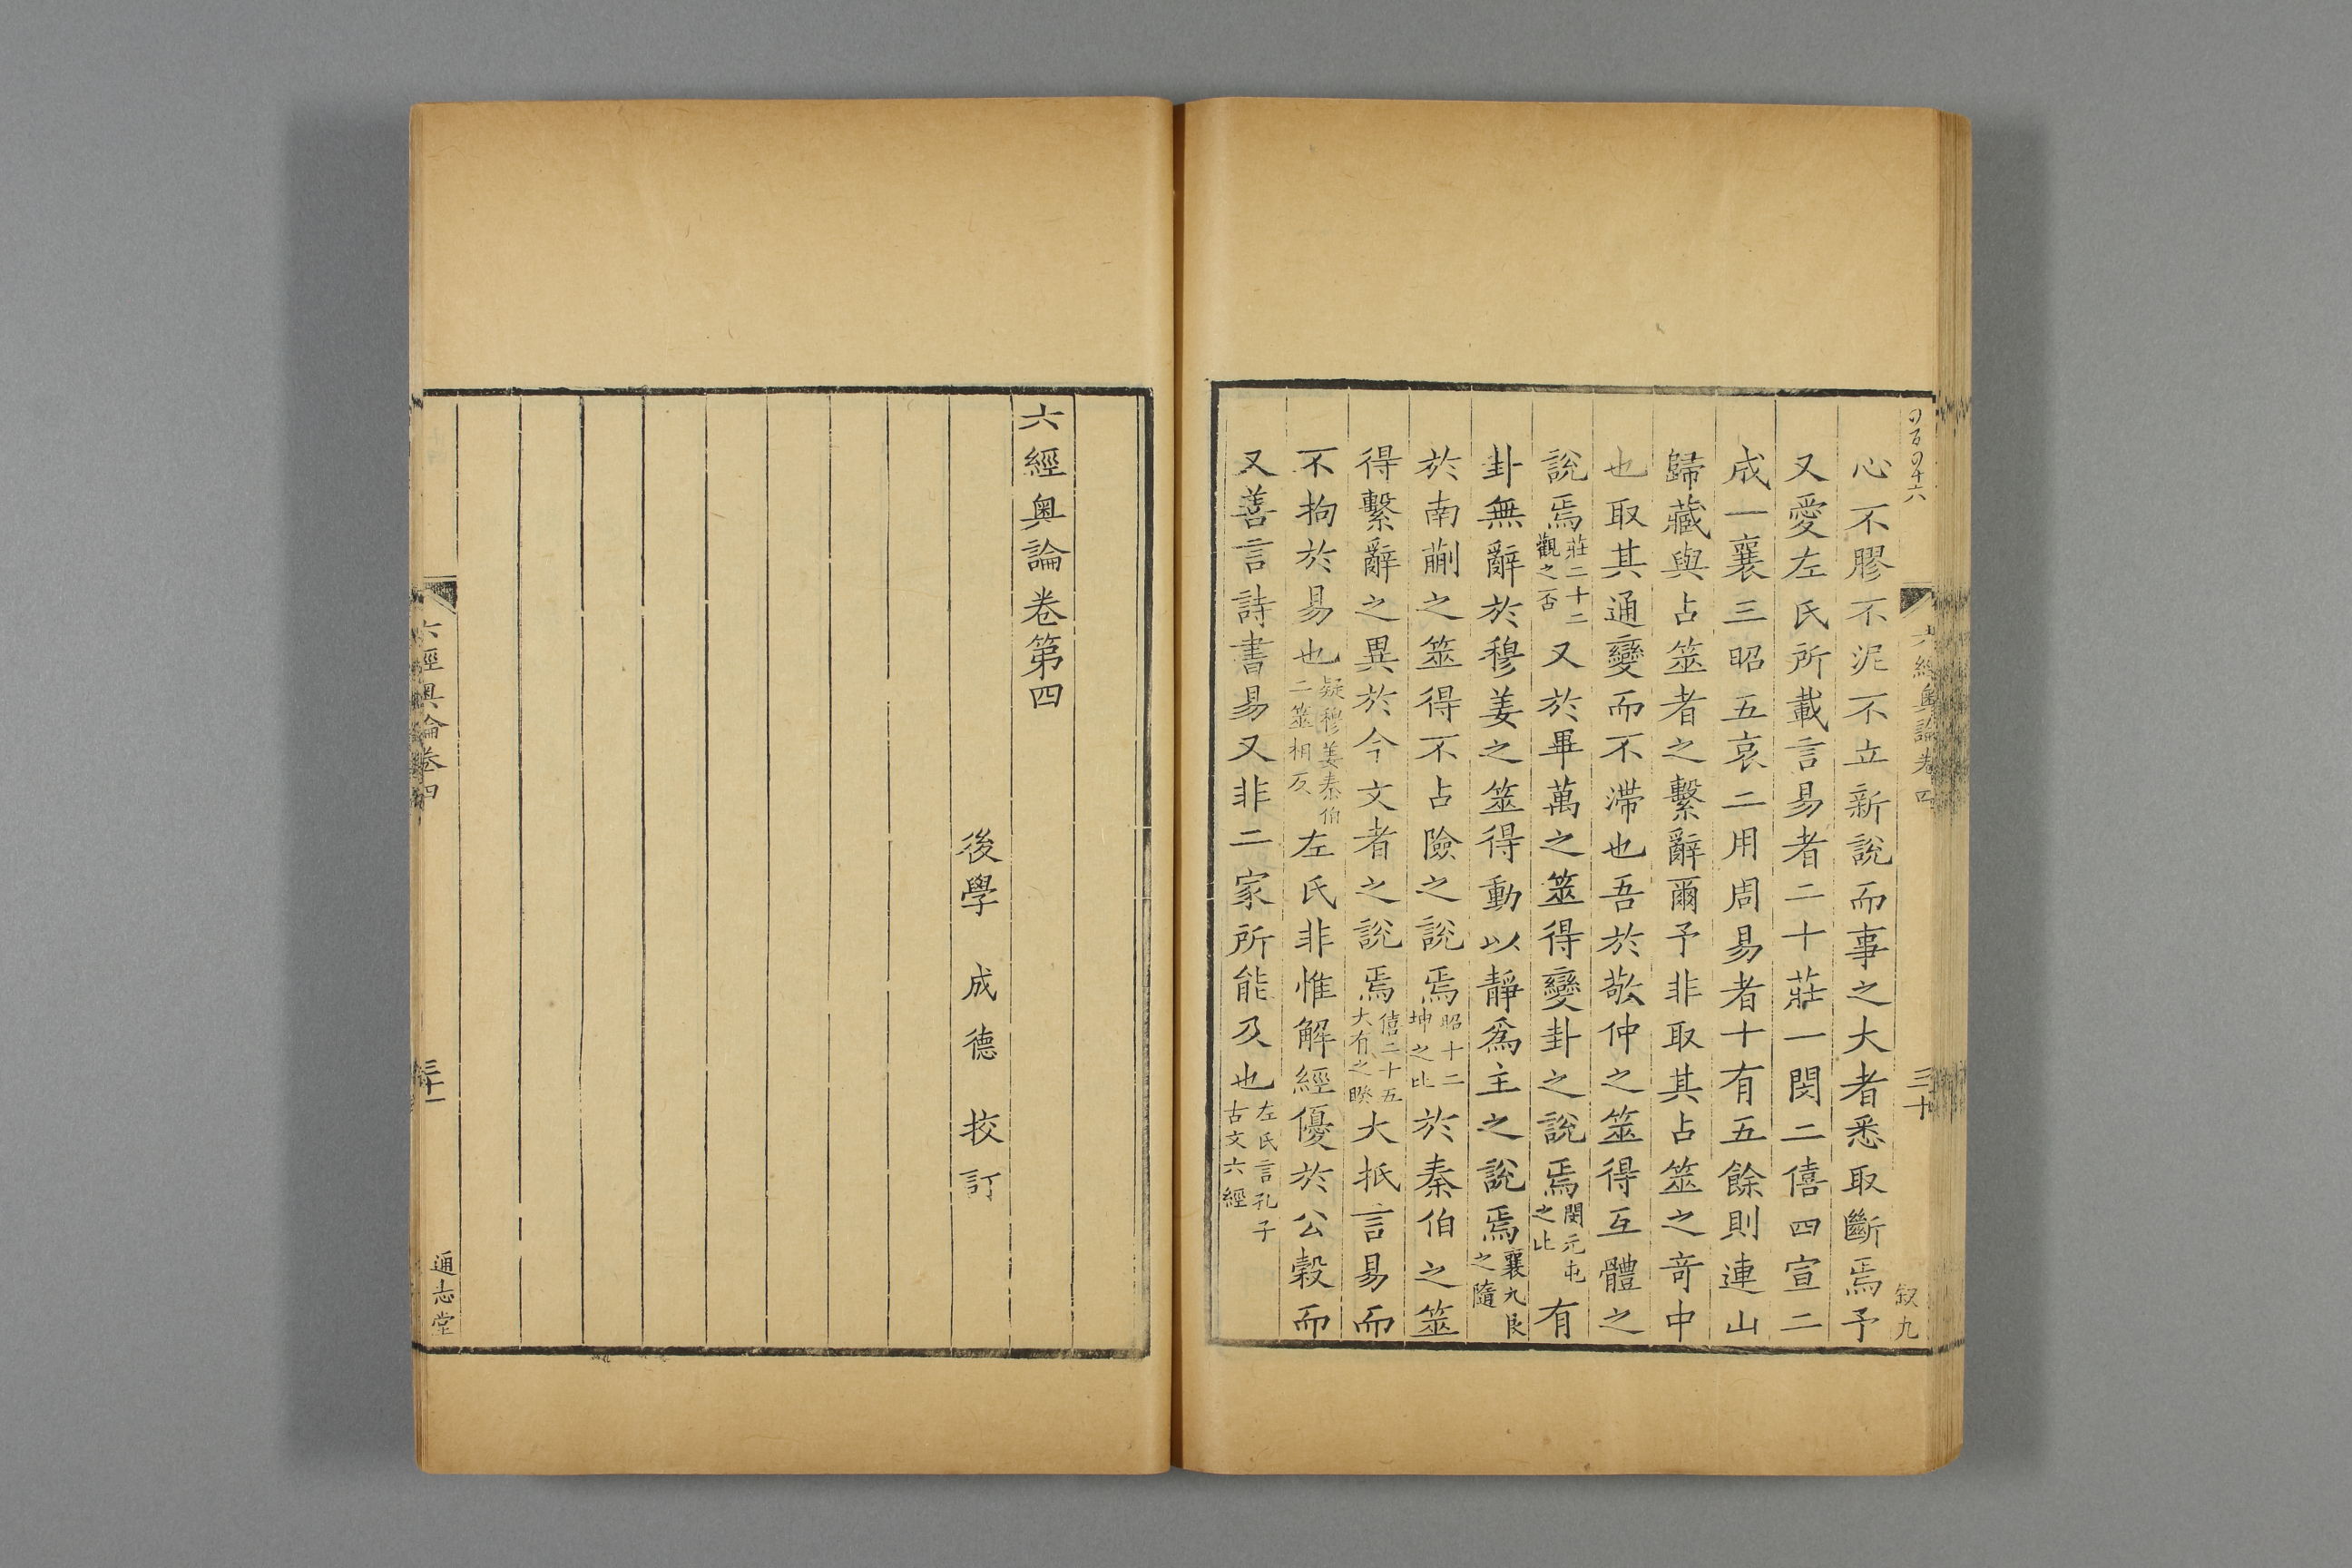 心不膠不泥不立新說而事之大者悉取斷焉予
又愛左氏所載言易者二十莊一閔二僖四宣二
成一襄三昭五哀二用周易者十有五餘則連山
歸藏與占筮者之繫辭爾予非取其占筮之奇中
也取其通變而不滯也吾於敬仲之筮得互體之
說焉莊二十二觀之否又於畢萬之筮得變卦之說焉閔元屯之比有
卦無辭於穆姜之筮得動以靜爲主之說焉襄九艮之隨
於南蒯之筮得不占險之說焉昭十二坤之比於秦伯之筮
得繫辭之異於今文者之說焉僖二十五大有之睽大抵言易而
不拘於易也疑穆姜秦伯二筮相反左氏非惟解經優於公穀而
又善言詩書易又非二家所能及也左氏言孔子古文六經
六經奧論卷四
三十
釵九
六經奧論卷第四
後學 成德 挍訂
六經奧論卷四
三十一
通志堂